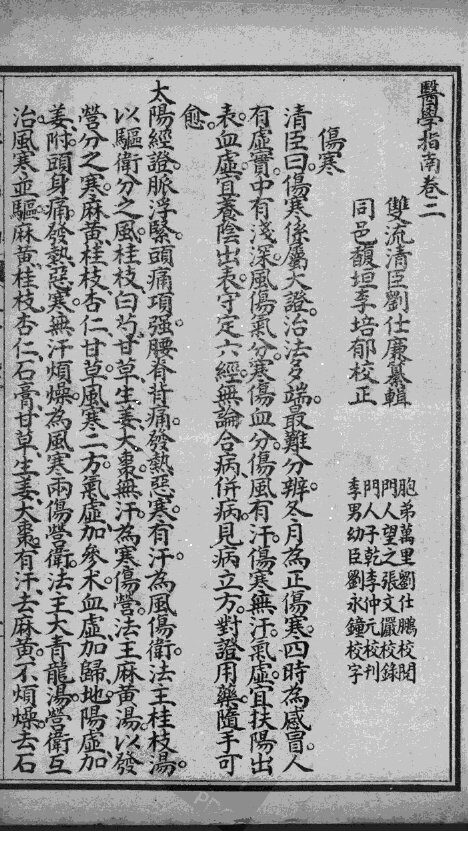 醫學指南卷二
雙流清臣劉仕廉纂輯
同邑馥垣李培郁校正
胞弟萬里劉仕鵬校閱
門人望之張文儼校錄
門人子乾李仲元校刊
季男幼臣劉永鐘校字
傷寒
清臣曰傷寒係屬大證治法多端最難分辨冬月為正傷寒四時為感冒人
有虛實中有淺深風傷氣分寒傷血分傷風有汗傷寒無汗氣虛宜扶陽出
表血虛宜養陰出表守定六經無論合病併病見病立方對證用藥隨手可
愈
太陽經證脈浮緊頭痛項强腰脊骨痛發熱惡寒有汗為風傷衛法主桂枝湯
以驅衛分之風桂枝白芍甘草生姜大棗無汗為寒傷營法主麻黃湯以發
營分之寒麻黃桂枝杏仁甘草風寒二方氣虛加參朮血虛加歸地陽虛加
姜附頭身痛發熱惡寒無汗煩燥為風寒兩傷營衛法主大青龍湯營衛互
治風寒並驅麻黃桂枝杏仁石膏甘草生姜大棗有汗去麻黃不煩燥去石